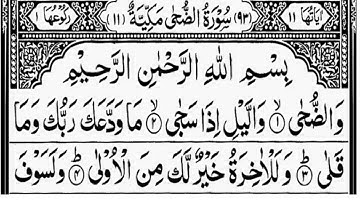 اٰيَاتُهَا ١١ (٩٣) سُوْرَةُ الضُّحٰى مَكِّيَّةٌ (١١) رُكُوْعُهَا ١
بِسْمِ اللهِ الرَّحْمٰنِ الرَّحِيْمِ
وَالضُّحٰى ۙ‏﴿١﴾ وَالَّيْلِ اِذَا سَجٰى ۙ‏﴿٢﴾ مَا وَدَّعَكَ رَبُّكَ وَمَا
قَلٰى ؕ‏﴿٣﴾ وَلَلْاٰخِرَةُ خَيْرٌ لَّكَ مِنَ الْاُوْلٰى ؕ‏﴿٤﴾ وَلَسَوْفَ